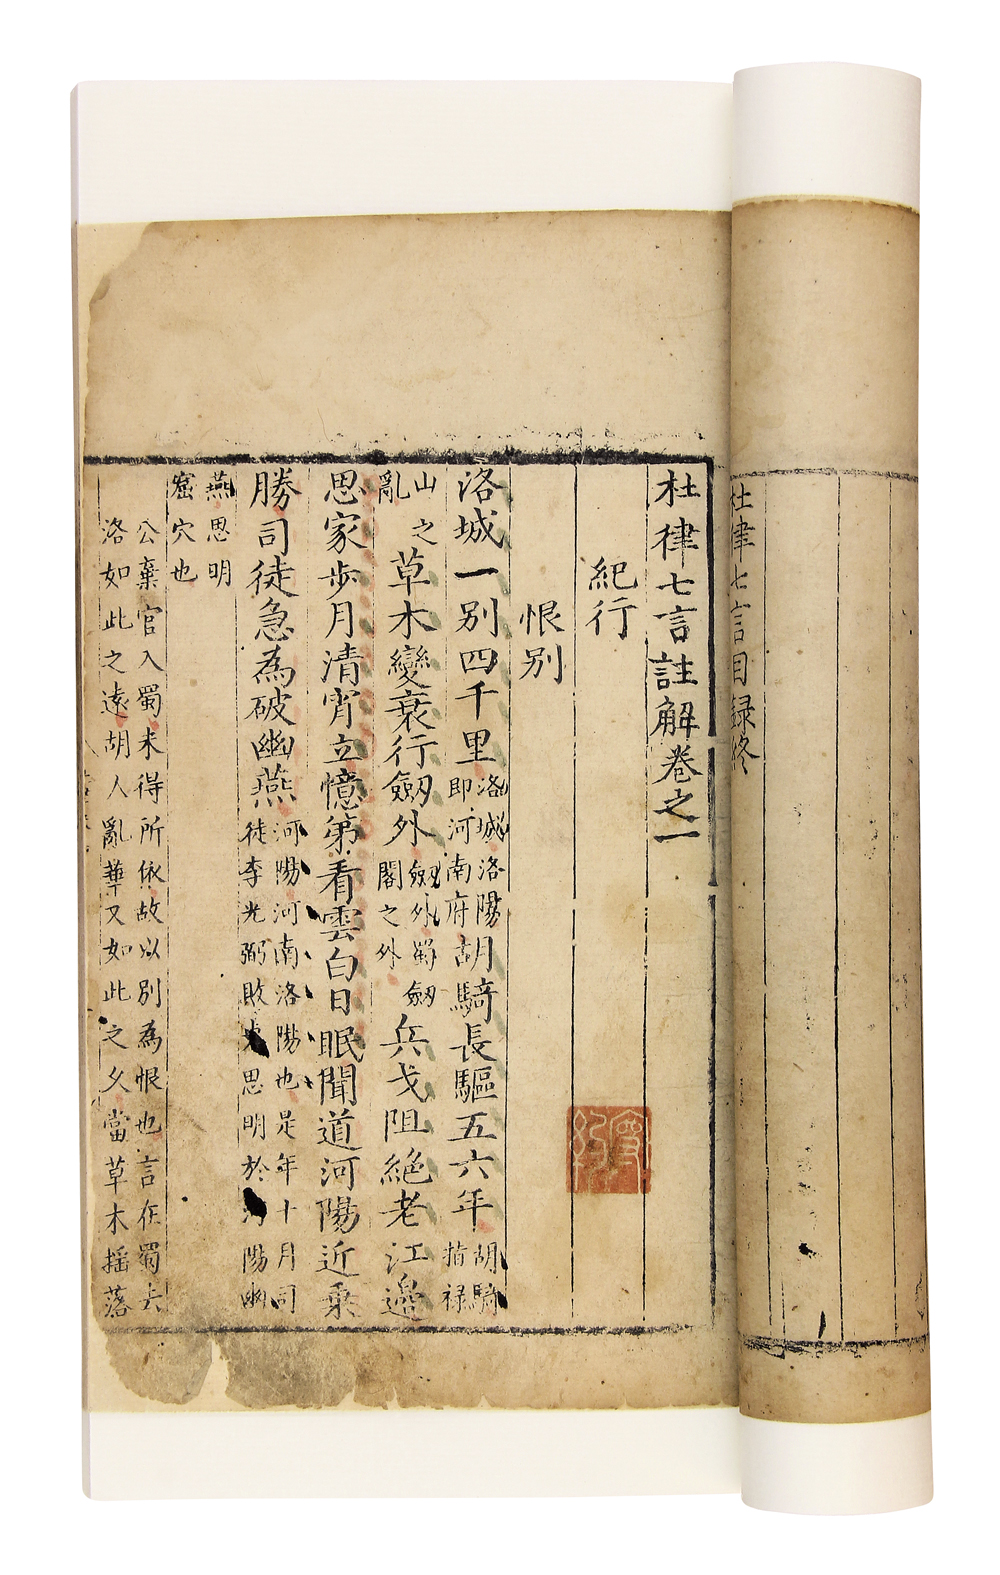 杜律七言目録終
杜律七言註解卷之一
紀行
恨别
洛城一别四千里洛城洛陽即河南府胡騎長驅五六年胡騎指禄
山之亂草木變衰行劒外劒外蜀劒閣之外兵戈阻絶老江邉
思家歩月清宵立憶第看雲白日眠聞道河陽近乗
勝司徒急為破幽燕河陽河南洛陽也是年十月司徒李光弼敗思明於陽幽
燕思明窟穴也
公棄官入蜀未得所依故以别為恨也言在蜀去
洛如此之遠胡人亂華又如此之久當草木揺落